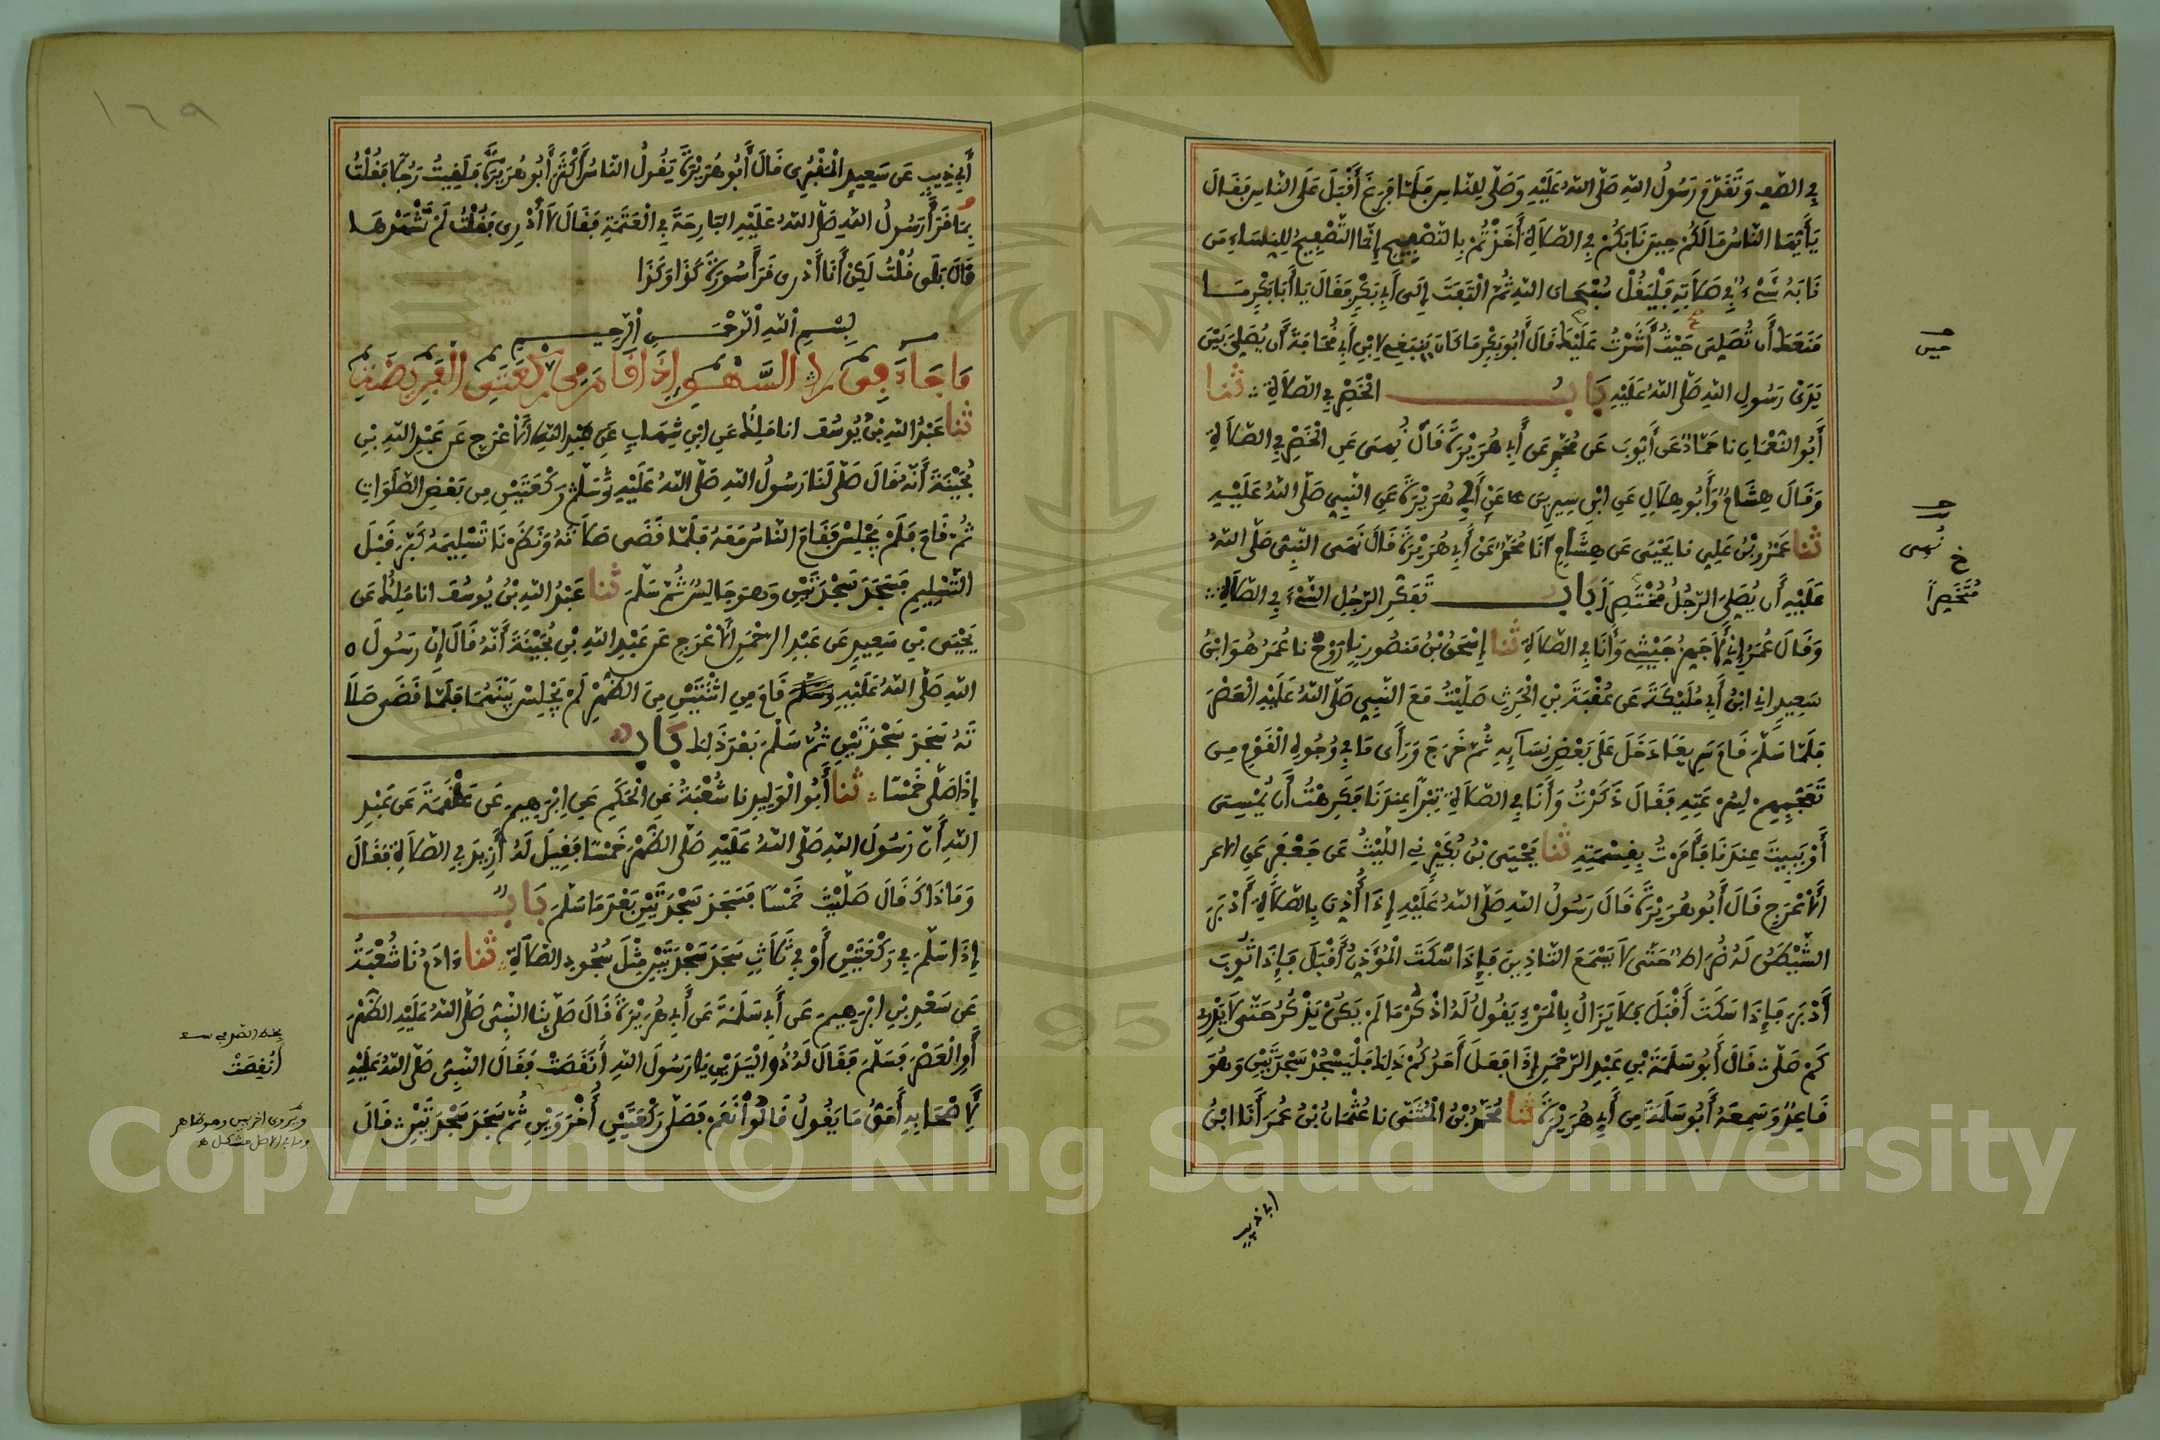 فِي الصَّفِّ وَتَقَدَّمَ رَسُولُ اللَّهِ صَلَّى اللَّهُ عَلَيْهِ وَصَلَّى لِلنَّاسِ فَلَمَّا فَرَغَ أَقْبَلَ عَلَى النَّاسِ فَقَالَ
يَأَيُّهَا النَّاسُ مَا لَكُمْ حِينَ نَابَكُمْ فِي الصَّلَاةِ أَخَذْتُمْ بِالتَّصْفِيحِ إِنَّمَا التَّصْفِيحُ لِلنِّسَاءِ مَن
نَابَهُ شَيْءٌ فِي صَلَاتِهِ فَلْيَقُلْ سُبْحَانَ اللَّهِ ثُمَّ الْتَفَتَ إِلَى أَبِي بَكْرٍ فَقَالَ يَا أَبَا بَكْرٍ مَا
مَنَعَكَ أَن تُصَلِّيَ حَيْثُ أَشَرْتُ عَلَيْكَ قَالَ أَبُو بَكْرٍ مَا كَانَ يَنبَغِي لِابْنِ أَبِي قُحَافَةَ أَن يُصَلِّيَ بَيْنَ
يَدَيْ رَسُولِ اللَّهِ صَلَّى اللَّهُ عَلَيْهِ بَابُ الْخَصْرِ فِي الصَّلَاةِ ثنا
أَبُو النُّعْمَانِ نا حَمَّادٌ عَن أَيُّوبَ عَن مُحَمَّدٍ عَن أَبِي هُرَيْرَةَ قَالَ نُهِيَ عَنِ الْخَصْرِ فِي الصَّلَاةِ
وَقَالَ هِشَامٌ وَأَبُو هِلَالٍ عَنِ ابْنِ سِيرِينَ عَنْ أَبِي هُرَيْرَةَ عَنِ النَّبِيِّ صَلَّى اللَّهُ عَلَيْهِ
ثنا عَمْرُو بْنُ عَلِيٍّ نا يَحْيَى عَن هِشَامٍ أَنَا مُحَمَّدٌ عَنْ أَبِي هُرَيْرَةَ قَالَ نَهَى النَّبِيُّ صَلَّى اللَّهُ
عَلَيْهِ أَن يُصَلِّيَ الرَّجُلُ مُخْتَصِرًا بَابُ تَفَكُّرِ الرَّجُلِ الشَّيْءَ فِي الصَّلَاةِ
وَقَالَ عُمَرُ إِنِّي لَأُجَهِّزُ جَيْشِي وَأَنَا فِي الصَّلَاةِ ثنا إِسْحَقُ بْنُ مَنصُورٍ نا رَوْحٌ نا عُمَرُ هُوَ ابْنُ
سَعِيدٍ اني ابْنُ أَبِي مُلَيْكَةَ عَن عُقْبَةَ بْنِ الْحَرِثِ صَلَّيْتُ مَعَ النَّبِيِّ صَلَّى اللَّهُ عَلَيْهِ الْعَصْرَ
فَلَمَّا سَلَّمَ قَامَ سَرِيعًا دَخَلَ عَلَى بَعْضِ نِسَائِهِ ثُمَّ خَرَجَ وَرَأَى مَا فِي وُجُوهِ الْقَوْمِ مِن
تَعَجُّبِهِمْ لِسُرْعَتِهِ فَقَالَ ذَكَرْتُ وَأَنَا فِي الصَّلَاةِ تِبْرًا عِندَنَا فَكَرِهْتُ أَن يُمْسِيَ
أَوْ يَبِيتَ عِندَنَا فَأَمَرْتُ بِقِسْمَتِهِ ثنا يَحْيَى بْنُ بُكَيْرٍ ني اللَّيْثُ عَن جَعْفَرٍ عَنِ الاعر
الْأَعْرَجِ قَالَ أَبُو هُرَيْرَةَ قَالَ رَسُولُ اللَّهِ صَلَّى اللَّهُ عَلَيْهِ إِذَا أُذِّنَ بِالصَّلَاةِ أَدْبَرَ
الشَّيْطَنُ لَهُ ضُرَاطٌ حَتَّى لَا يَسْمَعَ التَّاذِينَ فَإِذَا سَكَتَ الْمُؤَذِّنُ أَقْبَلَ فَإِذَا ثُوِّبَ
أَدْبَرَ فَإِذَا سَكَتَ أَقْبَلَ فَلَا يَزَالُ بِالْمَرْءِ يَقُولُ لَهُ اذْكُرْ مَا لَمْ يَكُنْ يَذْكُرُ حَتَّى لَا يَدْرِي
كَمْ صَلَّى قَالَ أَبُو سَلَمَةَ بْنُ عَبْدِ الرَّحْمَنِ إِذَا فَعَلَ أَحَدُكُمْ ذَلِكَ فَلْيَسْجُدْ سَجْدَتَيْنِ وَهُوَ
قَاعِدٌ وَسَمِعَهُ أَبُو سَلَمَةَ مِن أَبِي هُرَيْرَةَ ثنا مُحَمَّدُ بْنُ الْمُثَنَّى نا عُثْمَانُ بْنُ عُمَرَ أَنَا ابْنُ
نُهِيَ
خ
مُتَخَصِّرًا
١٦٩
أَبِي ذِيبٍ عَن سَعِيدٍ الْمَقْبُرِي قَالَ أَبُو هُرَيْرَةَ يَقُولُ النَّاسُ أَكْثَرَ أَبُو هُرَيْرَةَ فَلَقِيتُ رَجُلًا فَقُلْتُ
بِمَا قَرَأَ رَسُولُ اللَّهِ صَلَّى اللَّهُ عَلَيْهِ الْبَارِحَةَ فِي الْعَتَمَةِ فَقَالَ لَا أَدْرِي فَقُلْتُ لَمْ تَشْهَدْهَا
قَالَ بَلَى قُلْتُ لَكِنْ أَنَا أَدْرِي قَرَأَ سُورَةَ كَذَا وَكَذَا
بِسْمِ اللَّهِ الرَّحْمَنِ الرَّحِيمِ
مَا جَاءَ فِي السَّهْوِ إِذَا قَامَ مِن رَكْعَتَيِ الْفَرِيضَةِ
ثنا عَبْدُ اللَّهِ بْنُ يُوسُفَ انا مَلِكٌ عَنِ ابْنِ شِهَابٍ عَن عَبْدِ الْأَعْرَجِ عَن عَبْدِ اللَّهِ بْنِ
بُحَيْنَةَ أَنَّهُ قَالَ صَلَّى لَنَا رَسُولُ اللَّهِ صَلَّى اللَّهُ عَلَيْهِ وَسَلَّمَ رَكْعَتَيْنِ مِن بَعْضِ الصَّلَوَاتِ
ثُمَّ قَامَ فَلَمْ يَجْلِسْ فَقَامَ النَّاسُ مَعَهُ فَلَمَّا قَضَى صَلَاتَهُ وَنَظَرْنَا تَسْلِيمَهُ كَبَّرَ قَبْلَ
التَّسْلِيمِ فَسَجَدَ سَجْدَتَيْنِ وَهُوَ جَالِسٌ ثُمَّ سَلَّمَ ثنا عَبْدُ اللَّهِ بْنُ يُوسُفَ انا مَلِكٌ عَن
يَحْيَى بْنِ سَعِيدٍ عَن عَبْدِ الرَّحْمَنِ الْأَعْرَجِ عَن عَبْدِ اللَّهِ بْنِ بُحَيْنَةَ أَنَّهُ قَالَ إِنَّ رَسُولَ
اللَّهِ صَلَّى اللَّهُ عَلَيْهِ وَسَلَّمَ قَامَ مِنِ اثْنَتَيْنِ مِنَ الظُّهْرِ لَمْ يَجْلِسْ بَيْنَهُمَا فَلَمَّا قَضَى صَلَا
تَهُ سَجَدَ سَجْدَتَيْنِ ثُمَّ سَلَّمَ بَعْدَ ذَلِكَ بَابُ
إِذَا صَلَّى خَمْسًا ثنا أَبُو الْوَلِيدِ نا شُعْبَةُ عَنِ الْحَكَمِ عَنِ ابْرَهِيمَ عَن عَلْقَمَةَ عَن عَبْدِ
اللَّهِ أَنَّ رَسُولَ اللَّهِ صَلَّى اللَّهُ عَلَيْهِ صَلَّى الظُّهْرَ خَمْسًا فَقِيلَ لَهُ أَزِيدَ فِي الصَّلَاةِ فَقَالَ
وَمَا ذَاكَ قَالَ صَلَّيْتَ خَمْسًا فَسَجَدَ سَجْدَتَيْنِ بَعْدَ مَا سَلَّمَ بَابُ
إِذَا سَلَّمَ فِي رَكْعَتَيْنِ أَوْ فِي ثَلَاثٍ سَجَدَ سَجْدَتَيْنِ مِثْلَ سُجُودِ الصَّلَاةِ ثنا ءَادَمُ نَا شُعْبَةُ
عَن سَعْدِ بْنِ ابْرَهِيمَ عَن أَبِي سَلَمَةَ عَن أَبِي هُرَيْرَةَ قَالَ صَلَّى بِنَا النَّبِيُّ صَلَّى اللَّهُ عَلَيْهِ الظُّهْرَ
أَوِ الْعَصْرَ فَسَلَّمَ فَقَالَ لَهُ ذُو الْيَدَيْنِ يَا رَسُولَ اللَّهِ أَنَقَصَتْ فَقَالَ النَّبِيُّ صَلَّى اللَّهُ عَلَيْهِ
لِأَصْحَابِهِ أَحَقٌّ مَا يَقُولُ قَالُوا نَعَمْ فَصَلَّى رَكْعَتَيْنِ أُخْرَوَيْنِ ثُمَّ سَجَدَ سَجْدَتَيْنِ قَالَ
أَنُقِصَتْ
Copyright © King Saud University